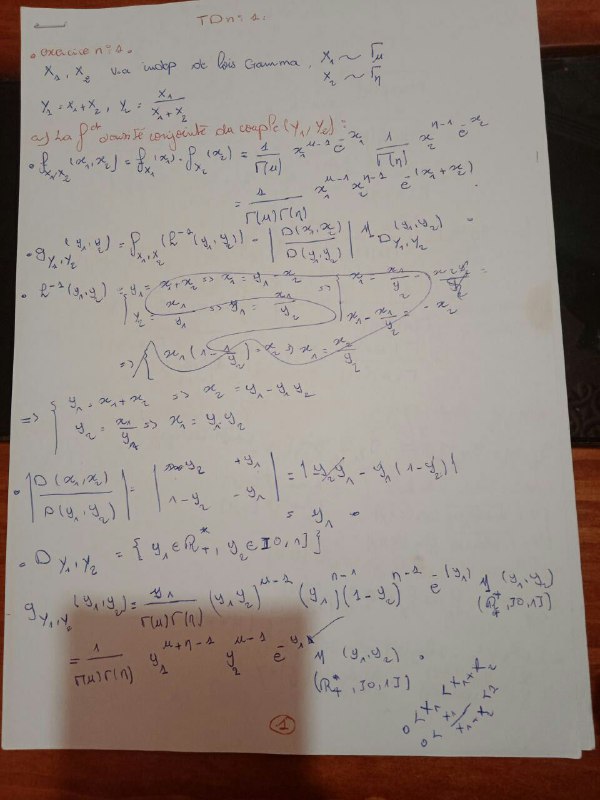 TD n°1.
• exercice n°1.
X₁, X₂ v.a indep de lois Gamma, X₁ ~ Γμ
X₂ ~ Γη
Y₁ = X₁ + X₂, Y₂ = X₁ / (X₁ + X₂)
a) La fct densité conjointe du couple (Y₁, Y₂) :
• f_{X₁,X₂}(x₁, x₂) = f_{X₁}(x₁) · f_{X₂}(x₂) = 1/Γ(μ) x₁^{μ-1} e^{-x₁} 1/Γ(η) x₂^{η-1} e^{-x₂}
= 1/(Γ(μ)Γ(η)) x₁^{μ-1} x₂^{η-1} e^{-(x₁+x₂)}
• g_{Y₁,Y₂}(y₁, y₂) = f_{X₁,X₂}(h^{-1}(y₁, y₂)) · |D(x₁, x₂) / D(y₁, y₂)| 1_{D_{Y₁,Y₂}}(y₁, y₂)
• h^{-1}(y₁, y₂) = { y₁ = x₁ + x₂ => x₁ = y₁ - x₂
y₂ = x₁/y₁ => y₁ = x₁/y₂
x₁ - x₁/y₂ = - x₂
=> { x₁(1 - 1/y₂) = x₂
=> { y₁ = x₁ + x₂ => x₂ = y₁ - y₁ y₂
y₂ = x₁/y₁ => x₁ = y₁ y₂
• |D(x₁, x₂) / D(y₁, y₂)| = | y₂ +y₁
1 - y₂ - y₁ | = |-y₂y₁ - y₁(1 - y₂)|
= y₁
• D_{Y₁,Y₂} = { y₁ ∈ R*₊, y₂ ∈ ]0, 1[ }
- g_{Y₁,Y₂}(y₁, y₂) = y₁/(Γ(μ)Γ(η)) (y₁ y₂)^{μ-1} (y₁)^{η-1} (1 - y₂)^{η-1} e^{-(y₁)} 1 (y₁, y₂)
(R*₊, ]0, 1[)
= 1/(Γ(μ)Γ(η)) y₁^{μ+η-1} y₂^{μ-1} e^{-y₁} 1 (y₁, y₂)
(R*₊, ]0, 1[)
1